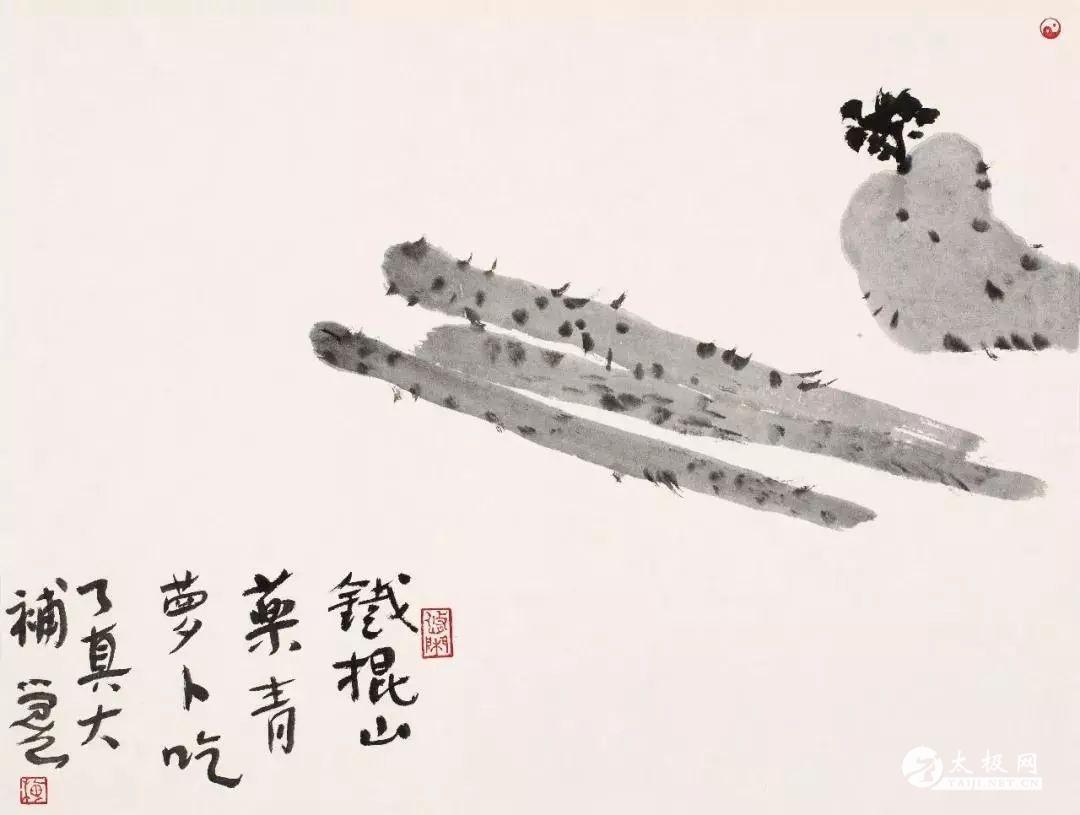 鐵棍山
藥青
萝卜吃
了真大
補
太极网
TAIJI.NET.CN